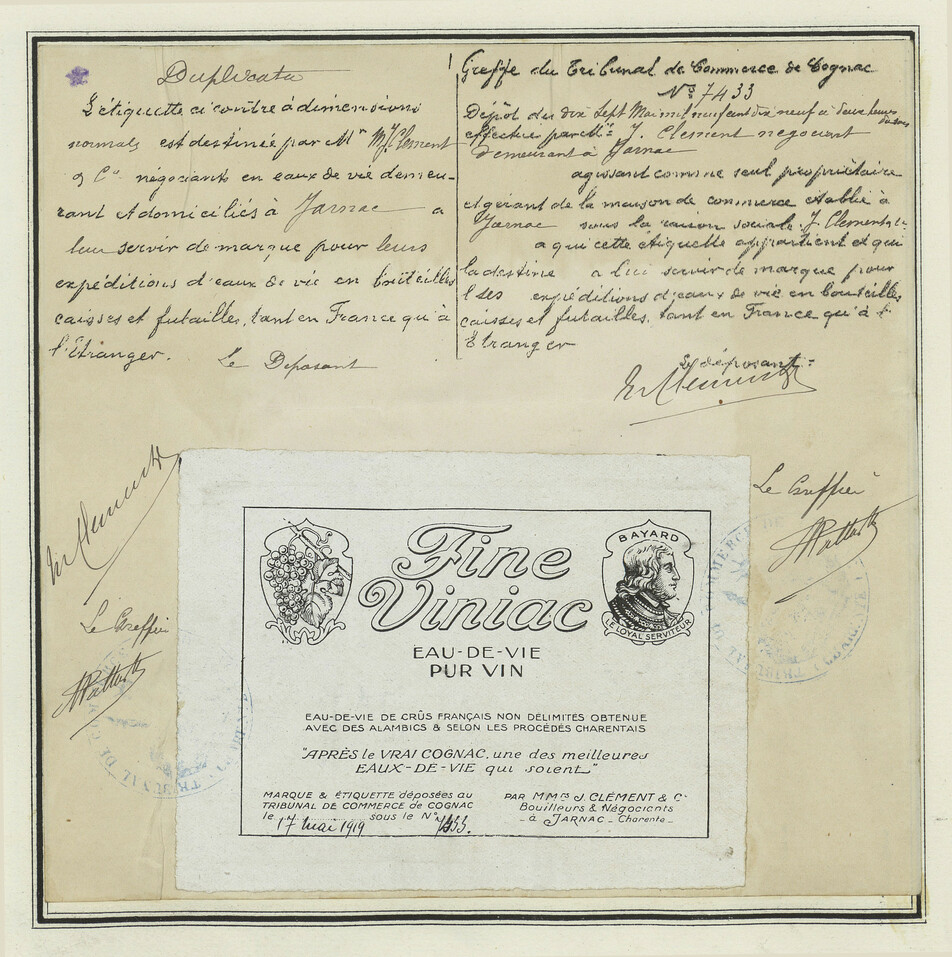 Duplicata
L'étiquette ci contre à dimensions
normales est destinée par Mr M J Clement
& Cie négociants en eaux de vie demeu-
rant et domiciliés à Jarnac a
leur servir de marque pour leurs
expéditions d'eaux de vie en bouteilles
caisses et futailles, tant en France qu'à
l'étranger.
Le Déposant
Greffe du Tribunal de Commerce de Cognac
No 7433
Dépôt du dix sept Mai mil neuf cent dix neuf à deux heures du soir
effectué par Mr J. Clement négociant
demeurant à Jarnac
agissant comme seul propriétaire
et gérant de la maison de commerce établie à
Jarnac sous la raison sociale J. Clement & Cie
a qui cette étiquette appartient et qui
la destine a lui servir de marque pour
ses expéditions d'eaux de vie en bouteilles
caisses et futailles, tant en France qu'à l'
Etranger
Le déposant =
Le Greffier
Le Greffier
Fine
Viniac
BAYARD
LE LOYAL SERVITEUR
EAU-DE-VIE
PUR VIN
EAU-DE-VIE DE CRÛS FRANÇAIS NON DÉLIMITÉS OBTENUE
AVEC DES ALAMBICS & SELON LES PROCÉDÉS CHARENTAIS
"APRÈS le VRAI COGNAC, une des meilleures
EAUX-DE-VIE qui soient"
MARQUE & ÉTIQUETTE déposées au
TRIBUNAL DE COMMERCE de COGNAC
le 17 Mai 1919 sous le No 7433.
PAR M Mrs J. CLÉMENT & Cº
Bouilleurs & Négociants
_ à JARNAC _ Charente _